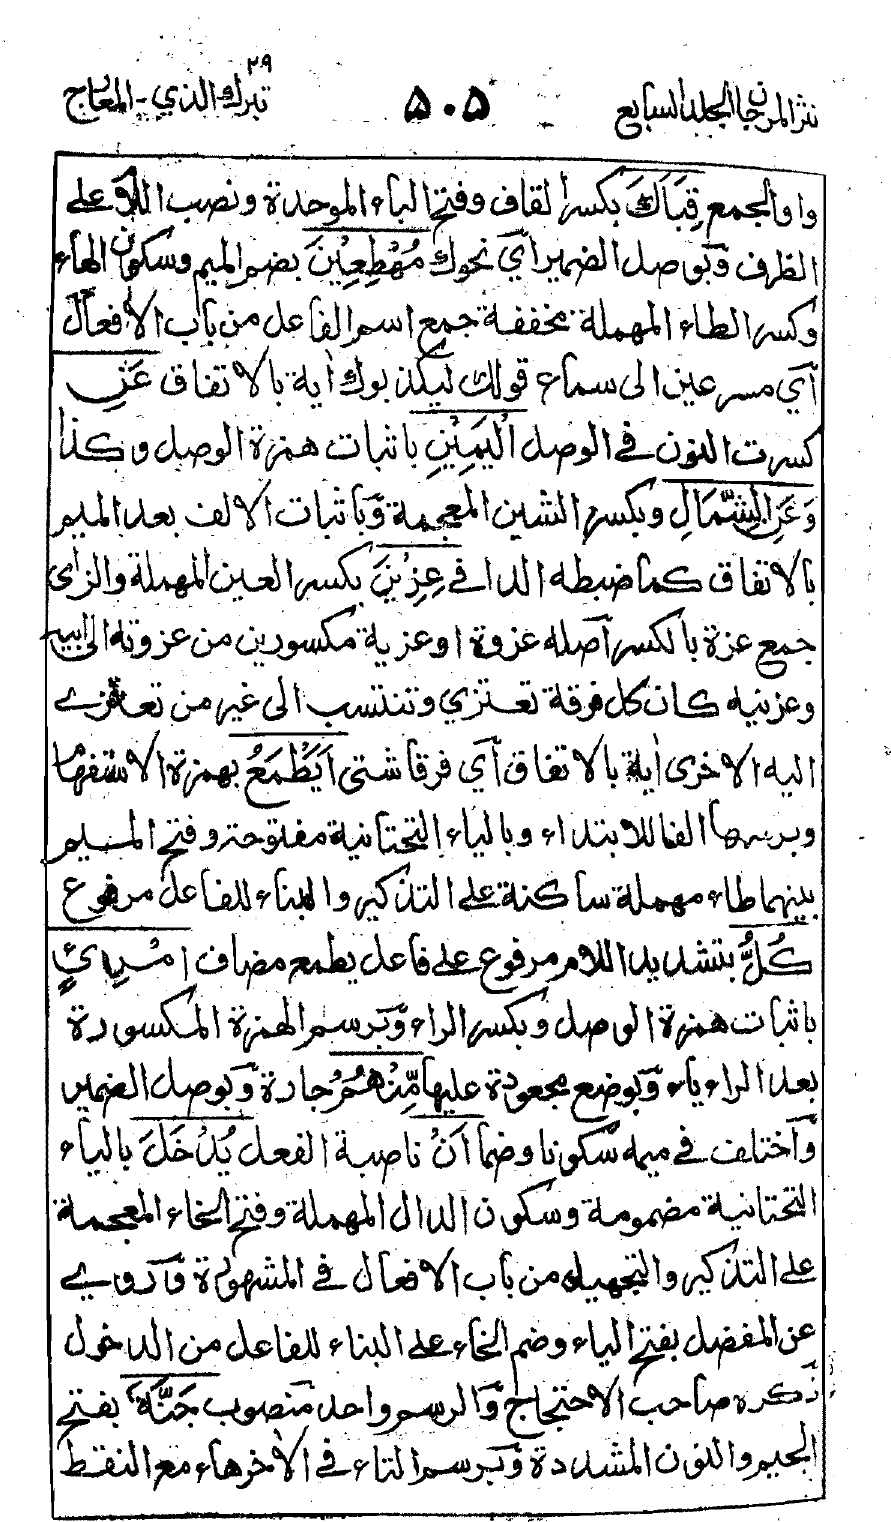 نثر المرجان الجلد السابع
٥٠٥
تبرك الذي - المعارج
٢٩
واو الجمع قِبَلَكَ بكسر القاف وفتح الباء الموحدة ونصب اللام على
الظرف وبوصل الضمير أي نحوك مُهْطِعِيْنَ بضم الميم وسكون الهاء
وكسر الطاء المهملة مخففة جمع اسم الفاعل من باب الافعال
أي مسرعين الى سماع قولك ليكذبوك أية بالاتفاق عَنِ
كسرت النون في الوصل الْيَمِيْنِ باثبات همزة الوصل وكذا
وَعَنِ الشِّمَالِ وبكسر الشين المعجمة وباثبات الالف بعد الميم
بالاتفاق كما ضبطه الداني عِزِيْنَ بكسر العين المهملة والزاي
جمع عزة بالكسر أصله عزوة او عزية مكسورين من عزوته الى ابيه
وعزيته كان كل فرقة تعتزي وتنتسب الى غير من تعتزي
اليه الاخرى أية بالاتفاق أي فرقا شتى أَيَطْمَعُ بهمزة الاستفهام
وبرسمها الفا للابتداء وبالياء التحتانية مفتوحة وفتح الميم
بينهما طاء مهملة ساكنة على التذكير والبناء للفاعل مرفوع
كُلُّ بتشديد اللام مرفوع على فاعل يطمع مضاف امْرِئٍ
باثبات همزة الوصل وبكسر الراء وبرسم الهمزة المكسورة
بعد الراء ياء وبوضع مجعودة عليها مِّنْهُمْ جارة وبوصل الضمير
واختلف في ميمه سكونا وضما أَنْ ناصبة الفعل يُدْخَلَ بالياء
التحتانية مضمومة وسكون الدال المهملة وفتح الخاء المعجمة
على التذكير والتجهيل من باب الافعال في المشهورة وروي
عن المفضل بفتح الياء وضم الخاء على البناء للفاعل من الدخول
ذكره صاحب الاحتجاج والرسم واحد منصوب جَنَّةَ بفتح
الجيم والنون المشددة وبرسم التاء في الأخر هاء مع النقط